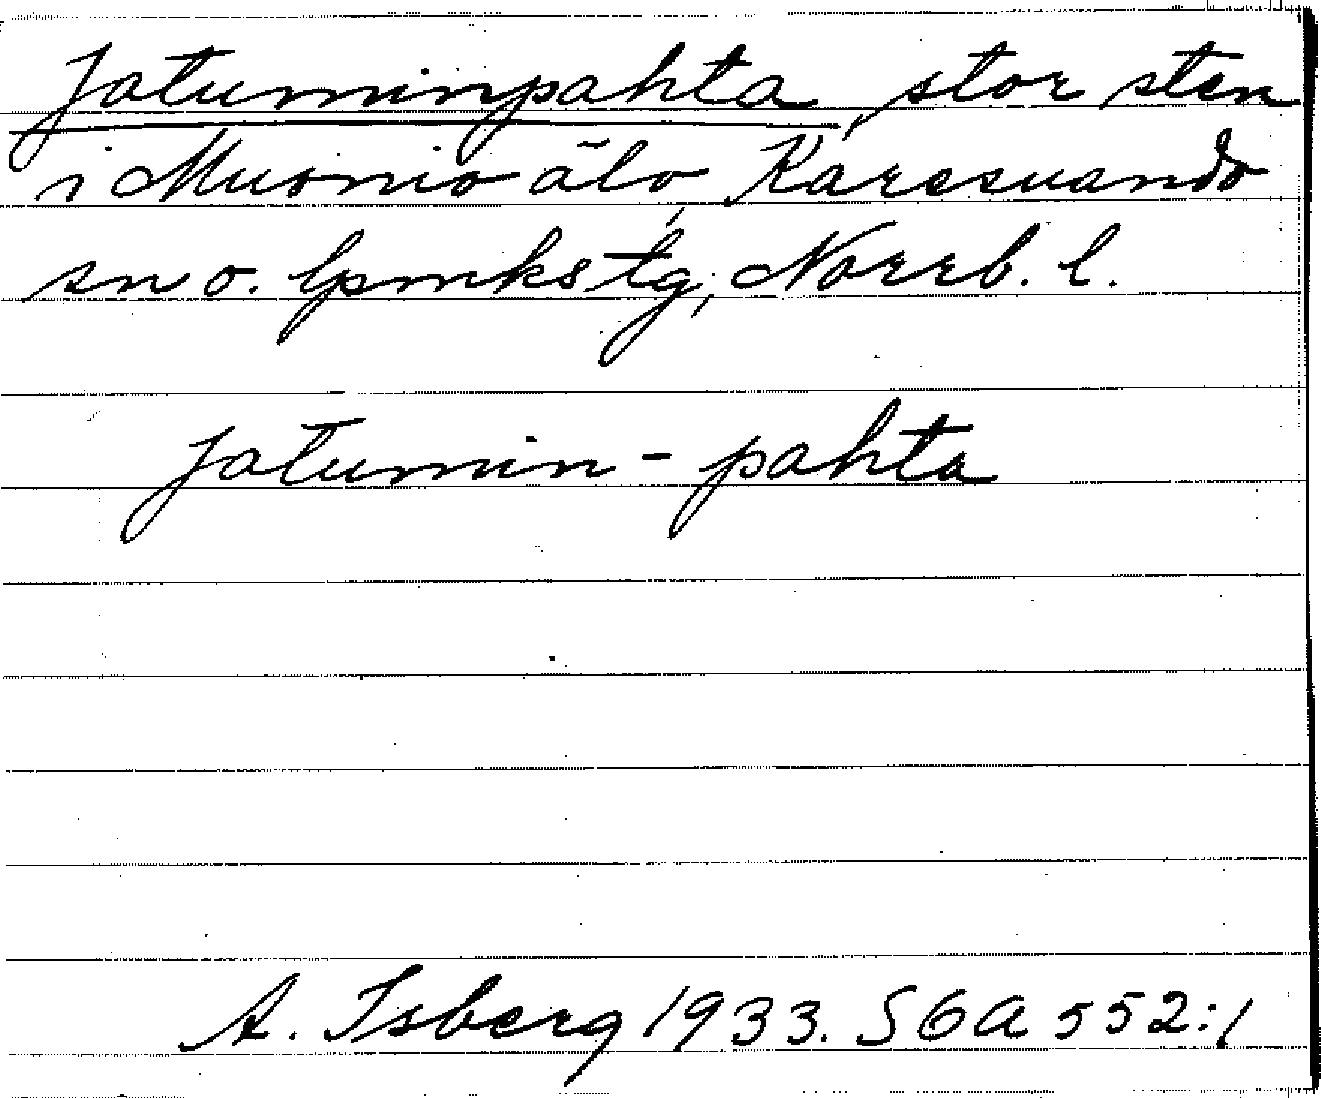 Jatuminpahta, stor sten
i Muonio älv, Karesuando
sn o. lpmkstg, Norrb. l.
jatumin-pahta
A. Isberg 1933. SGA 552:1